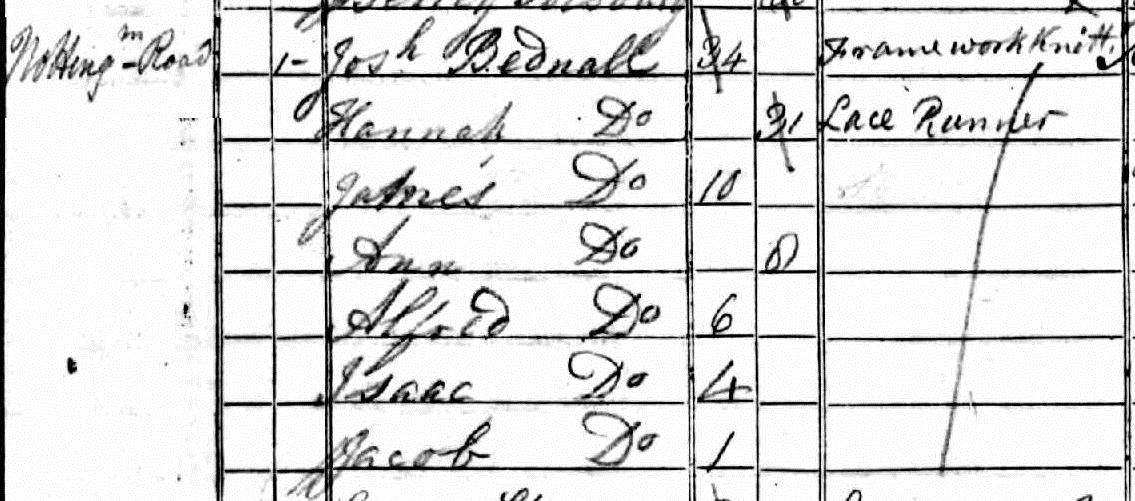 Notting^m-Road 1- Jos^h Bednall 34 Framework Knitt.
Hannah Do 31 Lace Runner
James Do 10
Ann Do 8
Alfred Do 6
Isaac Do 4
Jacob Do 1